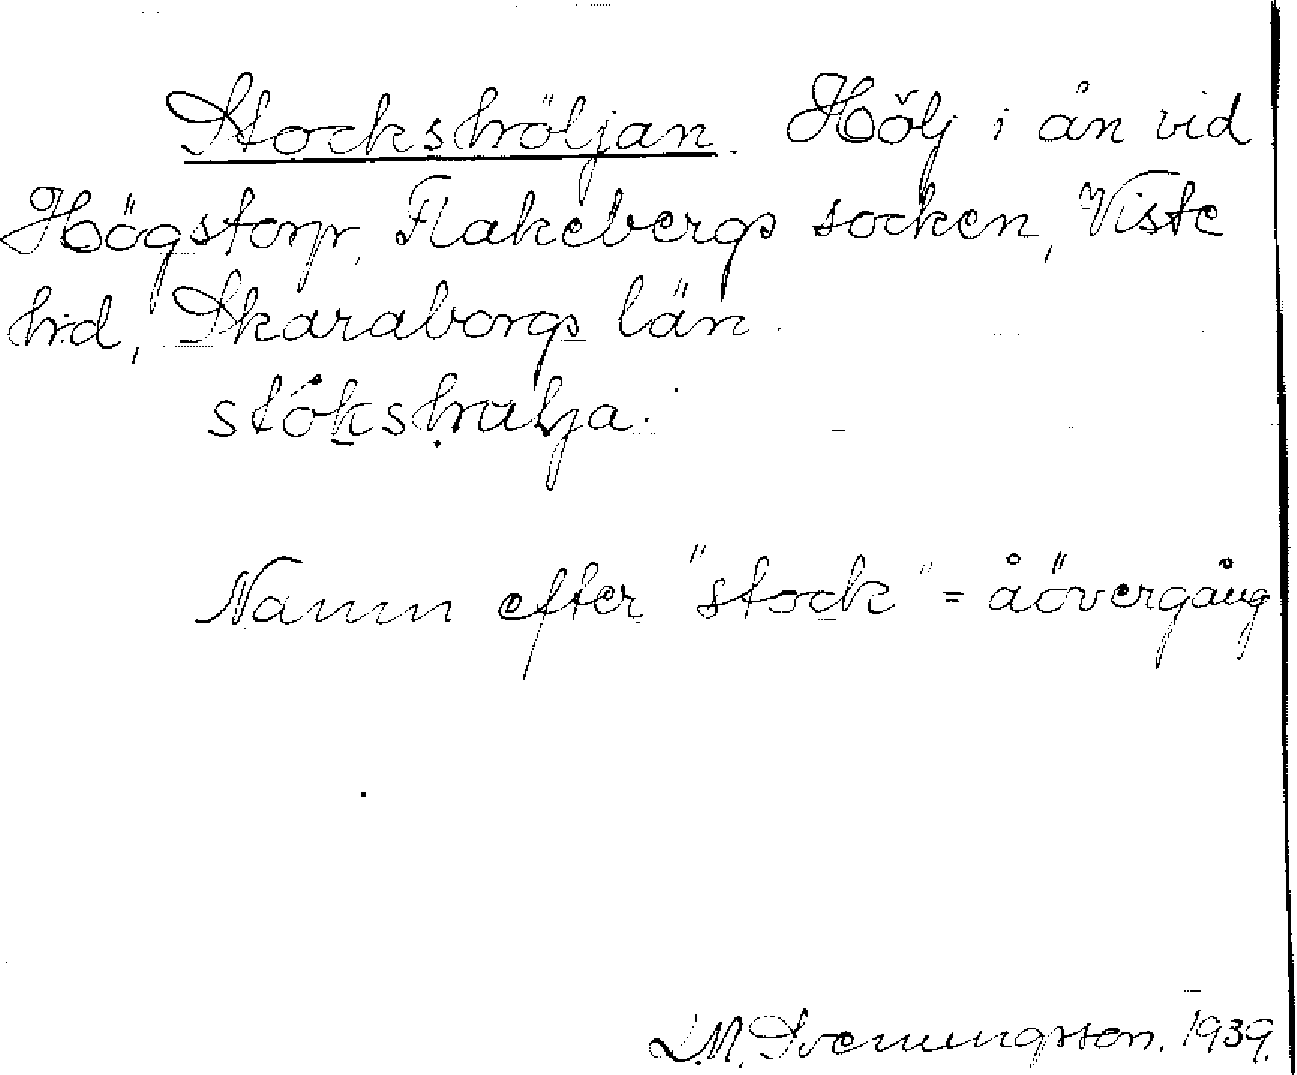 Stockshöljan. Hölj i ån vid
Högstorp, Flakebergs socken, Viste
hd, Skaraborgs län.
Namn efter "stock" = åövergång
L.M. Svenungsson. 1939.